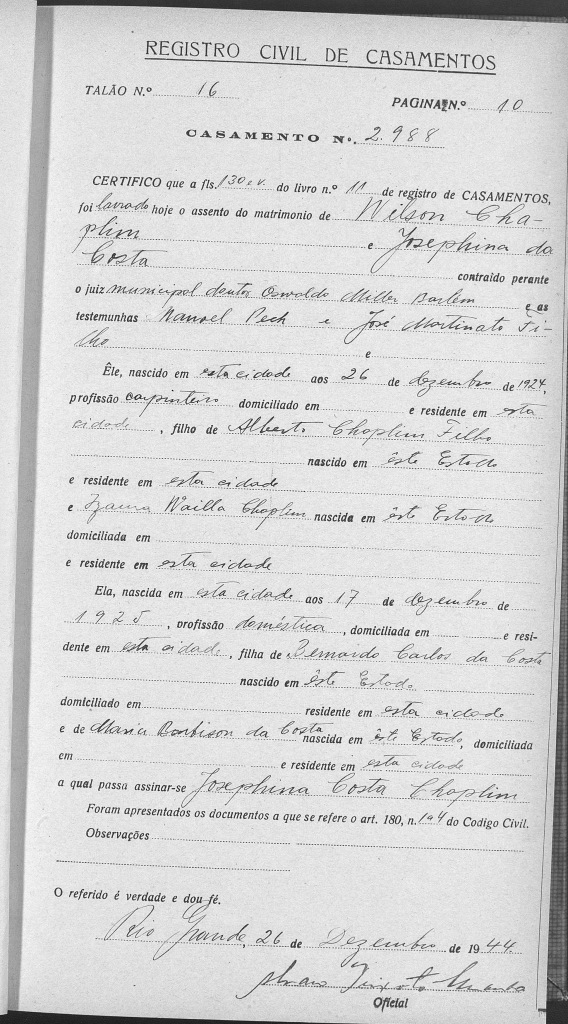 REGISTRO CIVIL DE CASAMENTOS
TALÃO N.º 16
PAGINA N.º 10
CASAMENTO Nº. 2.988
CERTIFICO que a fls. 130 e v. do livro n.º 11 de registro de CASAMENTOS,
foi lavrado hoje o assento do matrimonio de Wilson Cha-
plim e Josephina da
Costa contraído perante
o juiz municipal doutor Oswaldo Miller Barlém e as
testemunhas Manoel Pech e José Martinato Fi-
lho e
Êle, nascido em esta cidade aos 26 de dezembro de 1924,
profissão carpinteiro domiciliado em e residente em esta
cidade, filho de Alberto Chaplim Filho
nascido em êste Estado
e residente em esta cidade
e Chaplim nascida em êste Estado
domiciliada em
e residente em esta cidade
Ela, nascida em esta cidade aos 17 de dezembro de
1925, profissão doméstica, domiciliada em e resi-
dente em esta cidade, filha de Bernardo Carlos da Costa
nascido em êste Estado
domiciliado em residente em esta cidade
e de Maria da Costa nascida em êste Estado, domiciliada
em e residente em esta cidade
a qual passa assinar-se Josephina Costa Chaplim
Foram apresentados os documentos a que se refere o art. 180, n. 1 a 4 do Codigo Civil.
Observações
O referido é verdade e dou fé.
Rio Grande, 26 de Dezembro de 1944.
Oficial